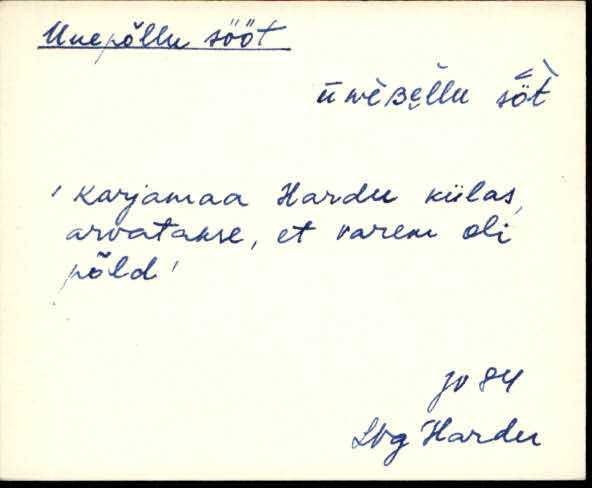 Unepõllu sööt
ūnèʙe̬llu sö̀t
'karjamaa Hardu külas,
arvatakse, et varem oli
põld'
Jv 84
Lbg Hardu